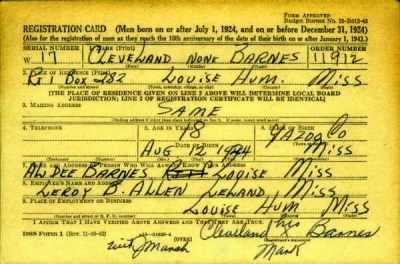 FORM APPROVED
Budget Bureau No. 33-R012-42
REGISTRATION CARD (Men born on or after July 1, 1924, and on or before December 31, 1924)
(Also for the registration of men as they reach the 18th anniversary of the date of their birth on or after January 1, 1943.)
SERIAL NUMBER 1. NAME (Print) ORDER NUMBER
W 17 CLEVELAND NONE BARNES 11912
2. PLACE OF RESIDENCE (Print)
Rt 1 Box 282 Louise Hum. Miss
(Number and street) (Town, township, village, or city) (County) (State)
[THE PLACE OF RESIDENCE GIVEN ON LINE 2 ABOVE WILL DETERMINE LOCAL BOARD
JURISDICTION; LINE 2 OF REGISTRATION CERTIFICATE WILL BE IDENTICAL]
3. MAILING ADDRESS
SAME
4. TELEPHONE 5. AGE IN YEARS 6. PLACE OF BIRTH
18 YAZOO Co
DATE OF BIRTH
AUG 12 1924 Miss
7. NAME AND ADDRESS OF PERSON WHO WILL ALWAYS KNOW YOUR ADDRESS
AL DEE BARNES LOUISE Miss
8. EMPLOYER'S NAME AND ADDRESS
LEROY B. ALLEN LELAND Miss
9. PLACE OF EMPLOYMENT OR BUSINESS
LOUISE HUM Miss
(Number and street or R. F. D. number) (Town) (County) (State)
I AFFIRM THAT I HAVE VERIFIED ABOVE ANSWERS AND THAT THEY ARE TRUE.
DSS Form 1 (Rev. 11-16-42) (OVER) Cleveland his Barnes
Marsh Mark